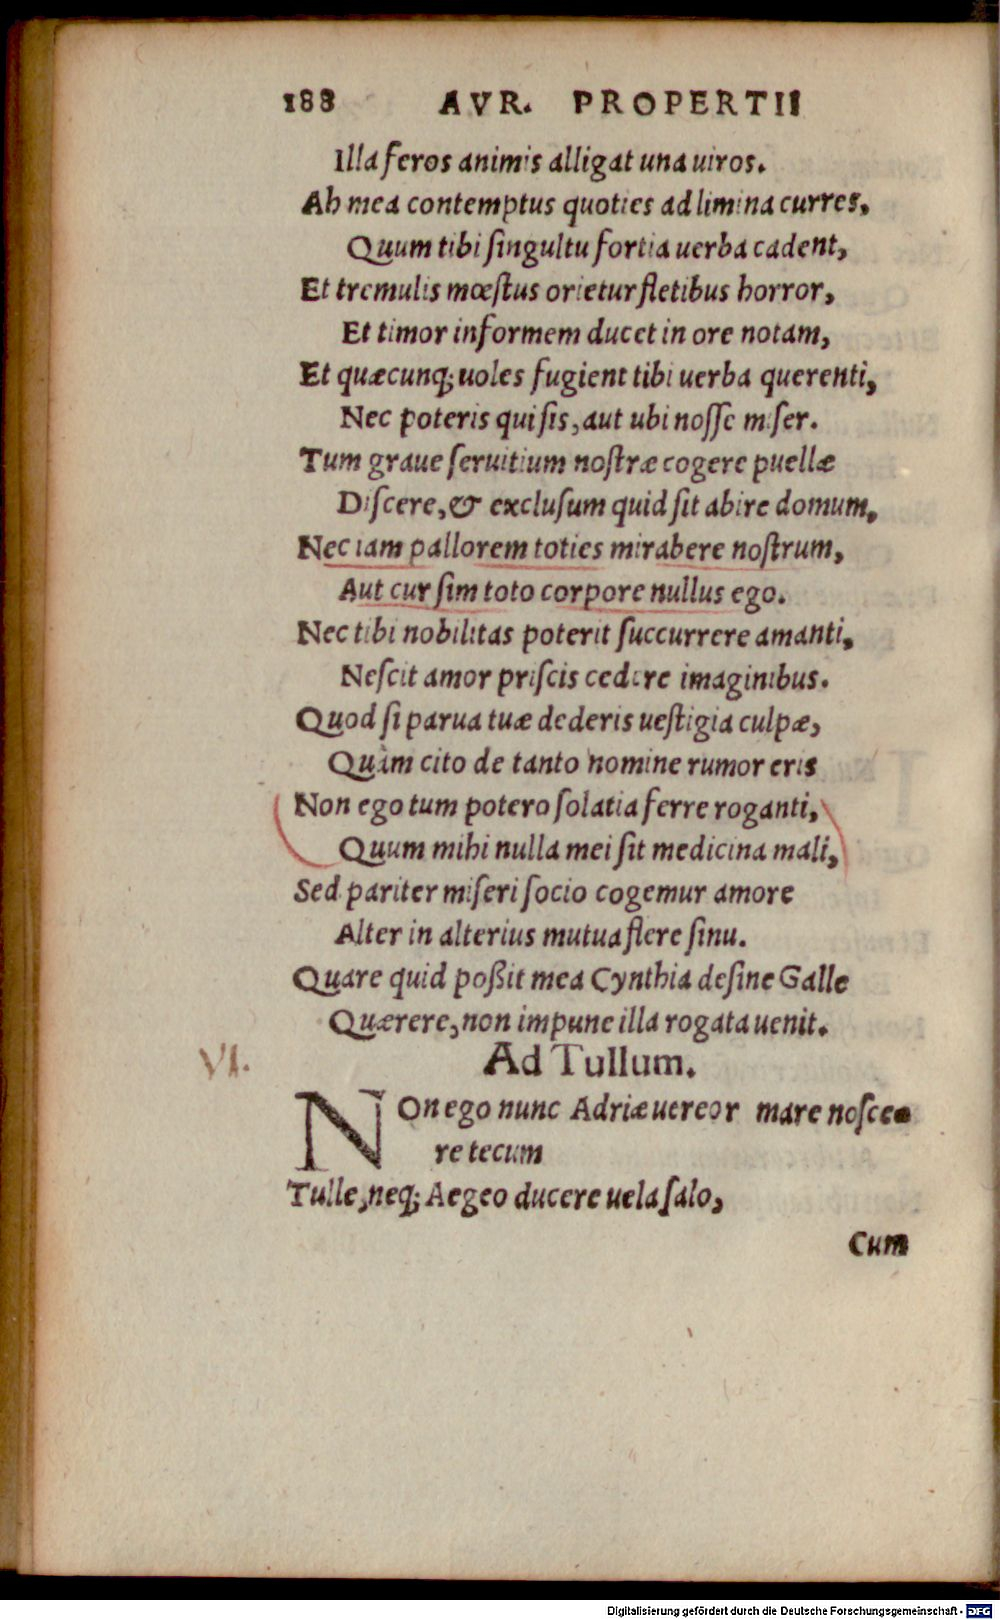 188 AVR. PROPERTII
Illa feros animis alligat una uiros.
Ah mea contemptus quoties ad limina curres,
Quum tibi ſingultu fortia uerba cadent,
Et tremulis mœſtus orietur fletibus horror,
Et timor informem ducet in ore notam,
Et quæcunq; uoles fugient tibi uerba querenti,
Nec poteris qui ſis, aut ubi noſſe miſer.
Tum graue ſeruitium noſtræ cogere puellæ
Diſcere, & excluſum quid ſit abire domum,
Nec iam pallorem toties mirabere noſtrum,
Aut cur ſim toto corpore nullus ego.
Nec tibi nobilitas poterit ſuccurrere amanti,
Neſcit amor priſcis cedere imaginibus.
Quod ſi parua tuæ dederis ueſtigia culpæ,
Quàm cito de tanto nomine rumor eris
Non ego tum potero ſolatia ferre roganti,
Quum mihi nulla mei ſit medicina mali,
Sed pariter miſeri ſocio cogemur amore
Alter in alterius mutua flere ſinu.
Quare quid poßit mea Cynthia deſine Galle
Quærere, non impune illa rogata uenit.
VI. Ad Tullum.
NOn ego nunc Adriæ uereor mare noſce=
re tecum
Tulle, neq; Aegeo ducere uela ſalo,
Cum
Digitalisierung gefördert durch die Deutsche Forschungsgemeinschaft - DFG